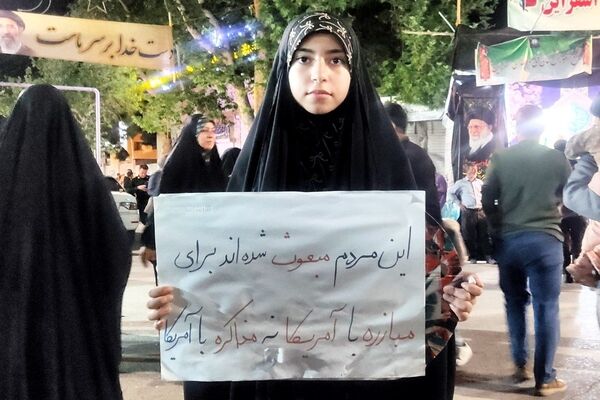 خدا بر سر ماست
این مردم مبعوث شده اند برای
مبارزه با آمریکا نه مذاکره با آمریکا